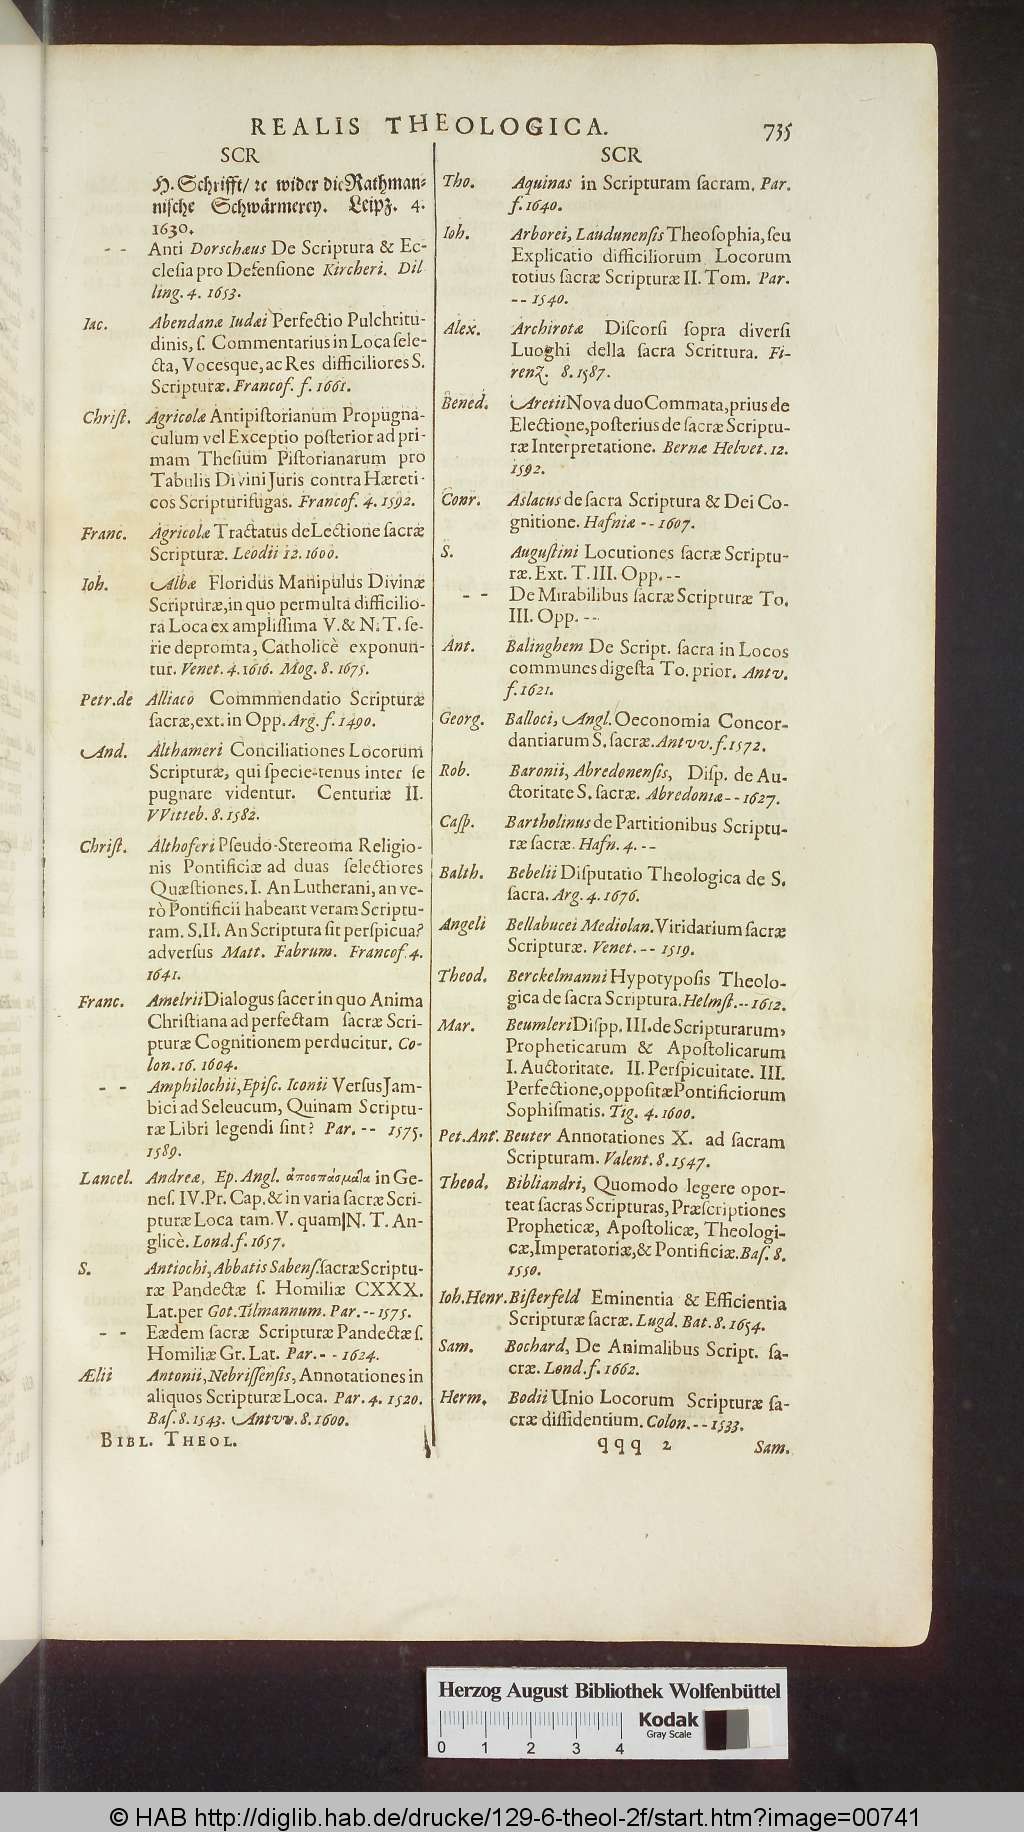 REALIS THEOLOGICA. 735
SCR
H. Schrifft/ ꝛc wider die Rathman-
nische Schwärmerey. Leipz. 4.
1630.
- - Anti Dorschæus De Scriptura & Ec-
clesia pro Defensione Kircheri. Dil
ling. 4. 1653.
Iac. Abendanæ Iudæi Perfectio Pulchritu-
dinis, ſ. Commentarius in Loca ſele-
cta, Vocesque, ac Res difficiliores S.
Scripturæ. Francof. f. 1661.
Chriſt. Agricolæ Antipiſtorianum Propugna-
culum vel Exceptio poſterior ad pri-
mam Theſium Piſtorianarum pro
Tabulis Divini Juris contra Hæreti-
cos Scripturifugas. Francof. 4. 1592.
Franc. Agricolæ Tractatus de Lectione ſacræ
Scripturæ. Leodii 12. 1600.
Ioh. Albæ Floridus Manipulus Divinæ
Scripturæ, in quo permulta difficilio-
ra Loca ex ampliſſima V. & N. T. ſe-
rie depromta, Catholicè exponun-
tur. Venet. 4. 1616. Mog. 8. 1675.
Petr. de Alliaco Commmendatio Scripturæ
ſacræ, ext. in Opp. Arg. f. 1490.
And. Althameri Conciliationes Locorum
Scripturæ, qui ſpecie-tenus inter ſe
pugnare videntur. Centuriæ II.
VVitteb. 8. 1582.
Chriſt. Althoferi Pſeudo-Stereoma Religio-
nis Pontificiæ ad duas ſelectiores
Quæſtiones. I. An Lutherani, an ve-
rò Pontificii habeant veram Scriptu-
ram. S. II. An Scriptura ſit perſpicua?
adverſus Matt. Fabrum. Francof. 4.
1641.
Franc. Amelrii Dialogus ſacer in quo Anima
Chriſtiana ad perfectam ſacræ Scri-
pturæ Cognitionem perducitur. Co-
lon. 16. 1604.
- - Amphilochii, Epiſc. Iconii Verſus Jam-
bici ad Seleucum, Quinam Scriptu-
ræ Libri legendi ſint? Par. -- 1575.
1589.
Lancel. Andreæ, Ep. Angl. ἀποσπάσμαῖα in Ge-
neſ. IV. Pr. Cap. & in varia ſacræ Scri-
pturæ Loca tam. V. quam N. T. An-
glicè. Lond. f. 1657.
S. Antiochi, Abbatis Sabenſ. ſacræ Scriptu-
ræ Pandectæ ſ. Homiliæ CXXX.
Lat. per Got. Tilmannum. Par. -- 1575.
- - Eædem ſacræ Scripturæ Pandectæ ſ.
Homiliæ Gr. Lat. Par. - - 1624.
Ælii Antonii, Nebriſſenſis, Annotationes in
aliquos Scripturæ Loca. Par. 4. 1520.
Baſ. 8. 1543. Antvv. 8. 1600.
BIBL. THEOL.
SCR
Tho. Aquinas in Scripturam ſacram. Par.
f. 1640.
Ioh. Arborei, Laudunenſis Theoſophia, ſeu
Explicatio difficiliorum Locorum
totius ſacræ Scripturæ II. Tom. Par.
-- 1540.
Alex. Archirotæ Diſcorſi ſopra diverſi
Luoghi della ſacra Scrittura. Fi-
renz. 8. 1587.
Bened. Aretii Nova duo Commata, prius de
Electione, poſterius de ſacræ Scriptu-
ræ Interpretatione. Bernæ Helvet. 12.
1592.
Conr. Aslacus de ſacra Scriptura & Dei Co-
gnitione. Hafniæ -- 1607.
S. Auguſtini Locutiones ſacræ Scriptu-
ræ. Ext. T. III. Opp. --
- - De Mirabilibus ſacræ Scripturæ To.
III. Opp. --
Ant. Balinghem De Script. ſacra in Locos
communes digeſta To. prior. Antv.
f. 1621.
Georg. Balloci, Angl. Oeconomia Concor-
dantiarum S. ſacræ. Antvv. f. 1572.
Rob. Baronii, Abredonenſis, Diſp. de Au-
ctoritate S. ſacræ. Abredoniæ -- 1627.
Caſp. Bartholinus de Partitionibus Scriptu-
ræ ſacræ. Hafn. 4. --
Balth. Bebelii Diſputatio Theologica de S.
ſacra. Arg. 4. 1676.
Angeli Bellabucei Mediolan. Viridarium ſacræ
Scripturæ. Venet. -- 1519.
Theod. Berckelmanni Hypotypoſis Theolo-
gica de ſacra Scriptura. Helmſt. -- 1612.
Mar. Beumleri Diſpp. III. de Scripturarum,
Propheticarum & Apoſtolicarum
I. Auctoritate. II. Perſpicuitate. III.
Perfectione, oppoſitæ Pontificiorum
Sophiſmatis. Tig. 4. 1600.
Pet. Ant. Beuter Annotationes X. ad ſacram
Scripturam. Valent. 8. 1547.
Theod. Bibliandri, Quomodo legere opor-
teat ſacras Scripturas, Præſcriptiones
Propheticæ, Apoſtolicæ, Theologi-
cæ, Imperatoriæ, & Pontificiæ. Baſ. 8.
1550.
Ioh. Henr. Biſterfeld Eminentia & Efficientia
Scripturæ ſacræ. Lugd. Bat. 8. 1654.
Sam. Bochard, De Animalibus Script. ſa-
cræ. Lond. f. 1662.
Herm. Bodii Unio Locorum Scripturæ ſa-
cræ diſſidentium. Colon. -- 1533.
qqq 2 Sam.
Herzog August Bibliothek Wolfenbüttel
Kodak
Gray Scale
0 1 2 3 4
© HAB http://diglib.hab.de/drucke/129-6-theol-2f/start.htm?image=00741